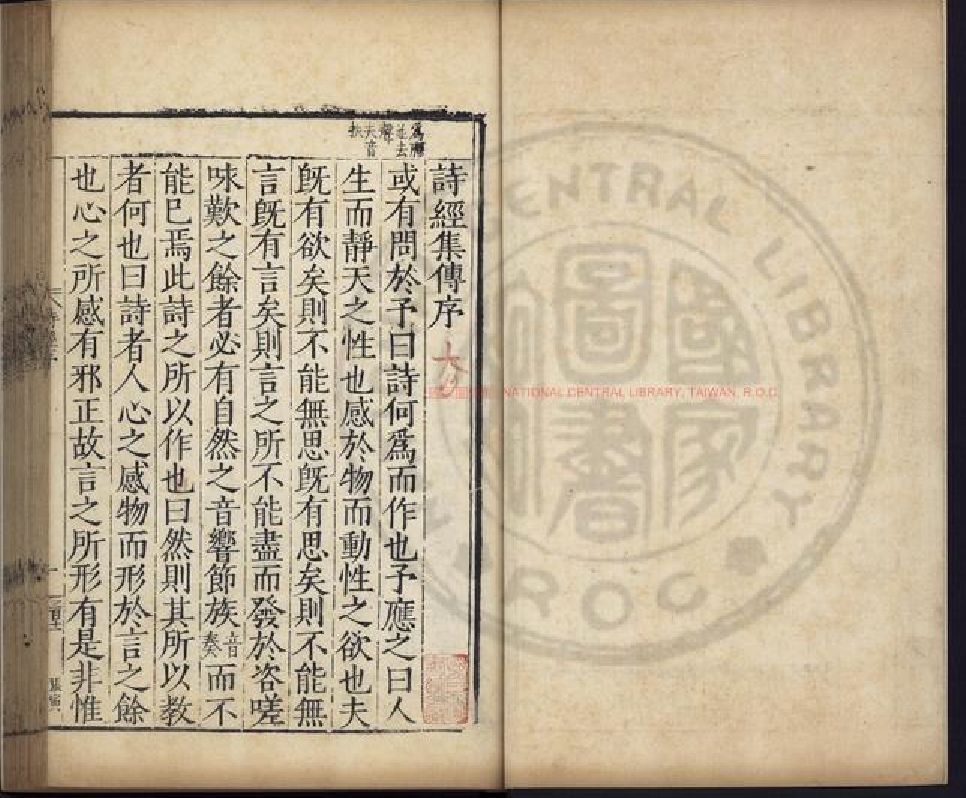 詩經集傳序
或有問於予曰詩何爲而作也予應之曰人
生而靜天之性也感於物而動性之欲也夫
旣有欲矣則不能無思旣有思矣則不能無
言旣有言矣則言之所不能盡而發於咨嗟
味歎之餘者必有自然之音響節族音奏而不
能已焉此詩之所以作也曰然則其所以教
者何也曰詩者人心之感物而形於言之餘
也心之所感有邪正故言之所形有是非惟
爲
去
聲夫
音扶
NATIONAL CENTRAL LIBRARY, TAIWAN, R.O.C
CENTRAL LIBRARY
R O C
國家
圖書